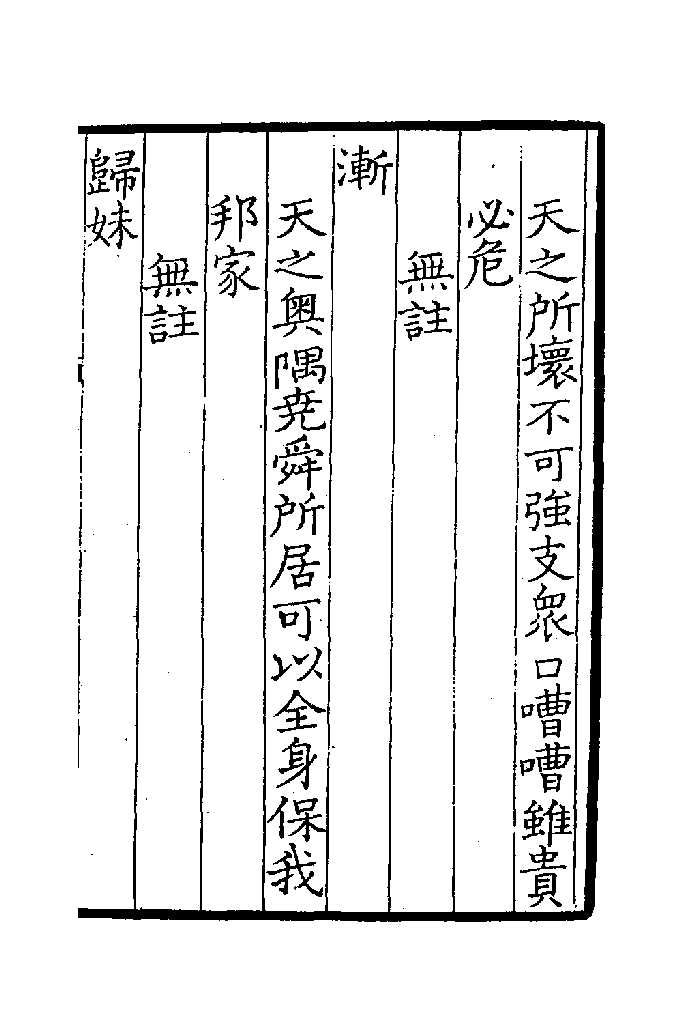 天之所壞不可強支衆口嘈嘈雖貴
必危
無註
漸
天之奧隅堯舜所居可以全身保我
邦家
無註
歸妹